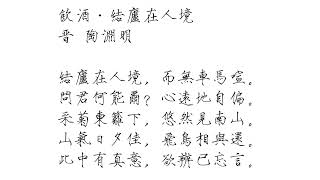 飲酒·結廬在人境
晉 陶淵明
結廬在人境，而無車馬喧。
問君何能爾？心遠地自偏。
采菊東籬下，悠然見南山。
山氣日夕佳，飛鳥相與還。
此中有真意，欲辨已忘言。